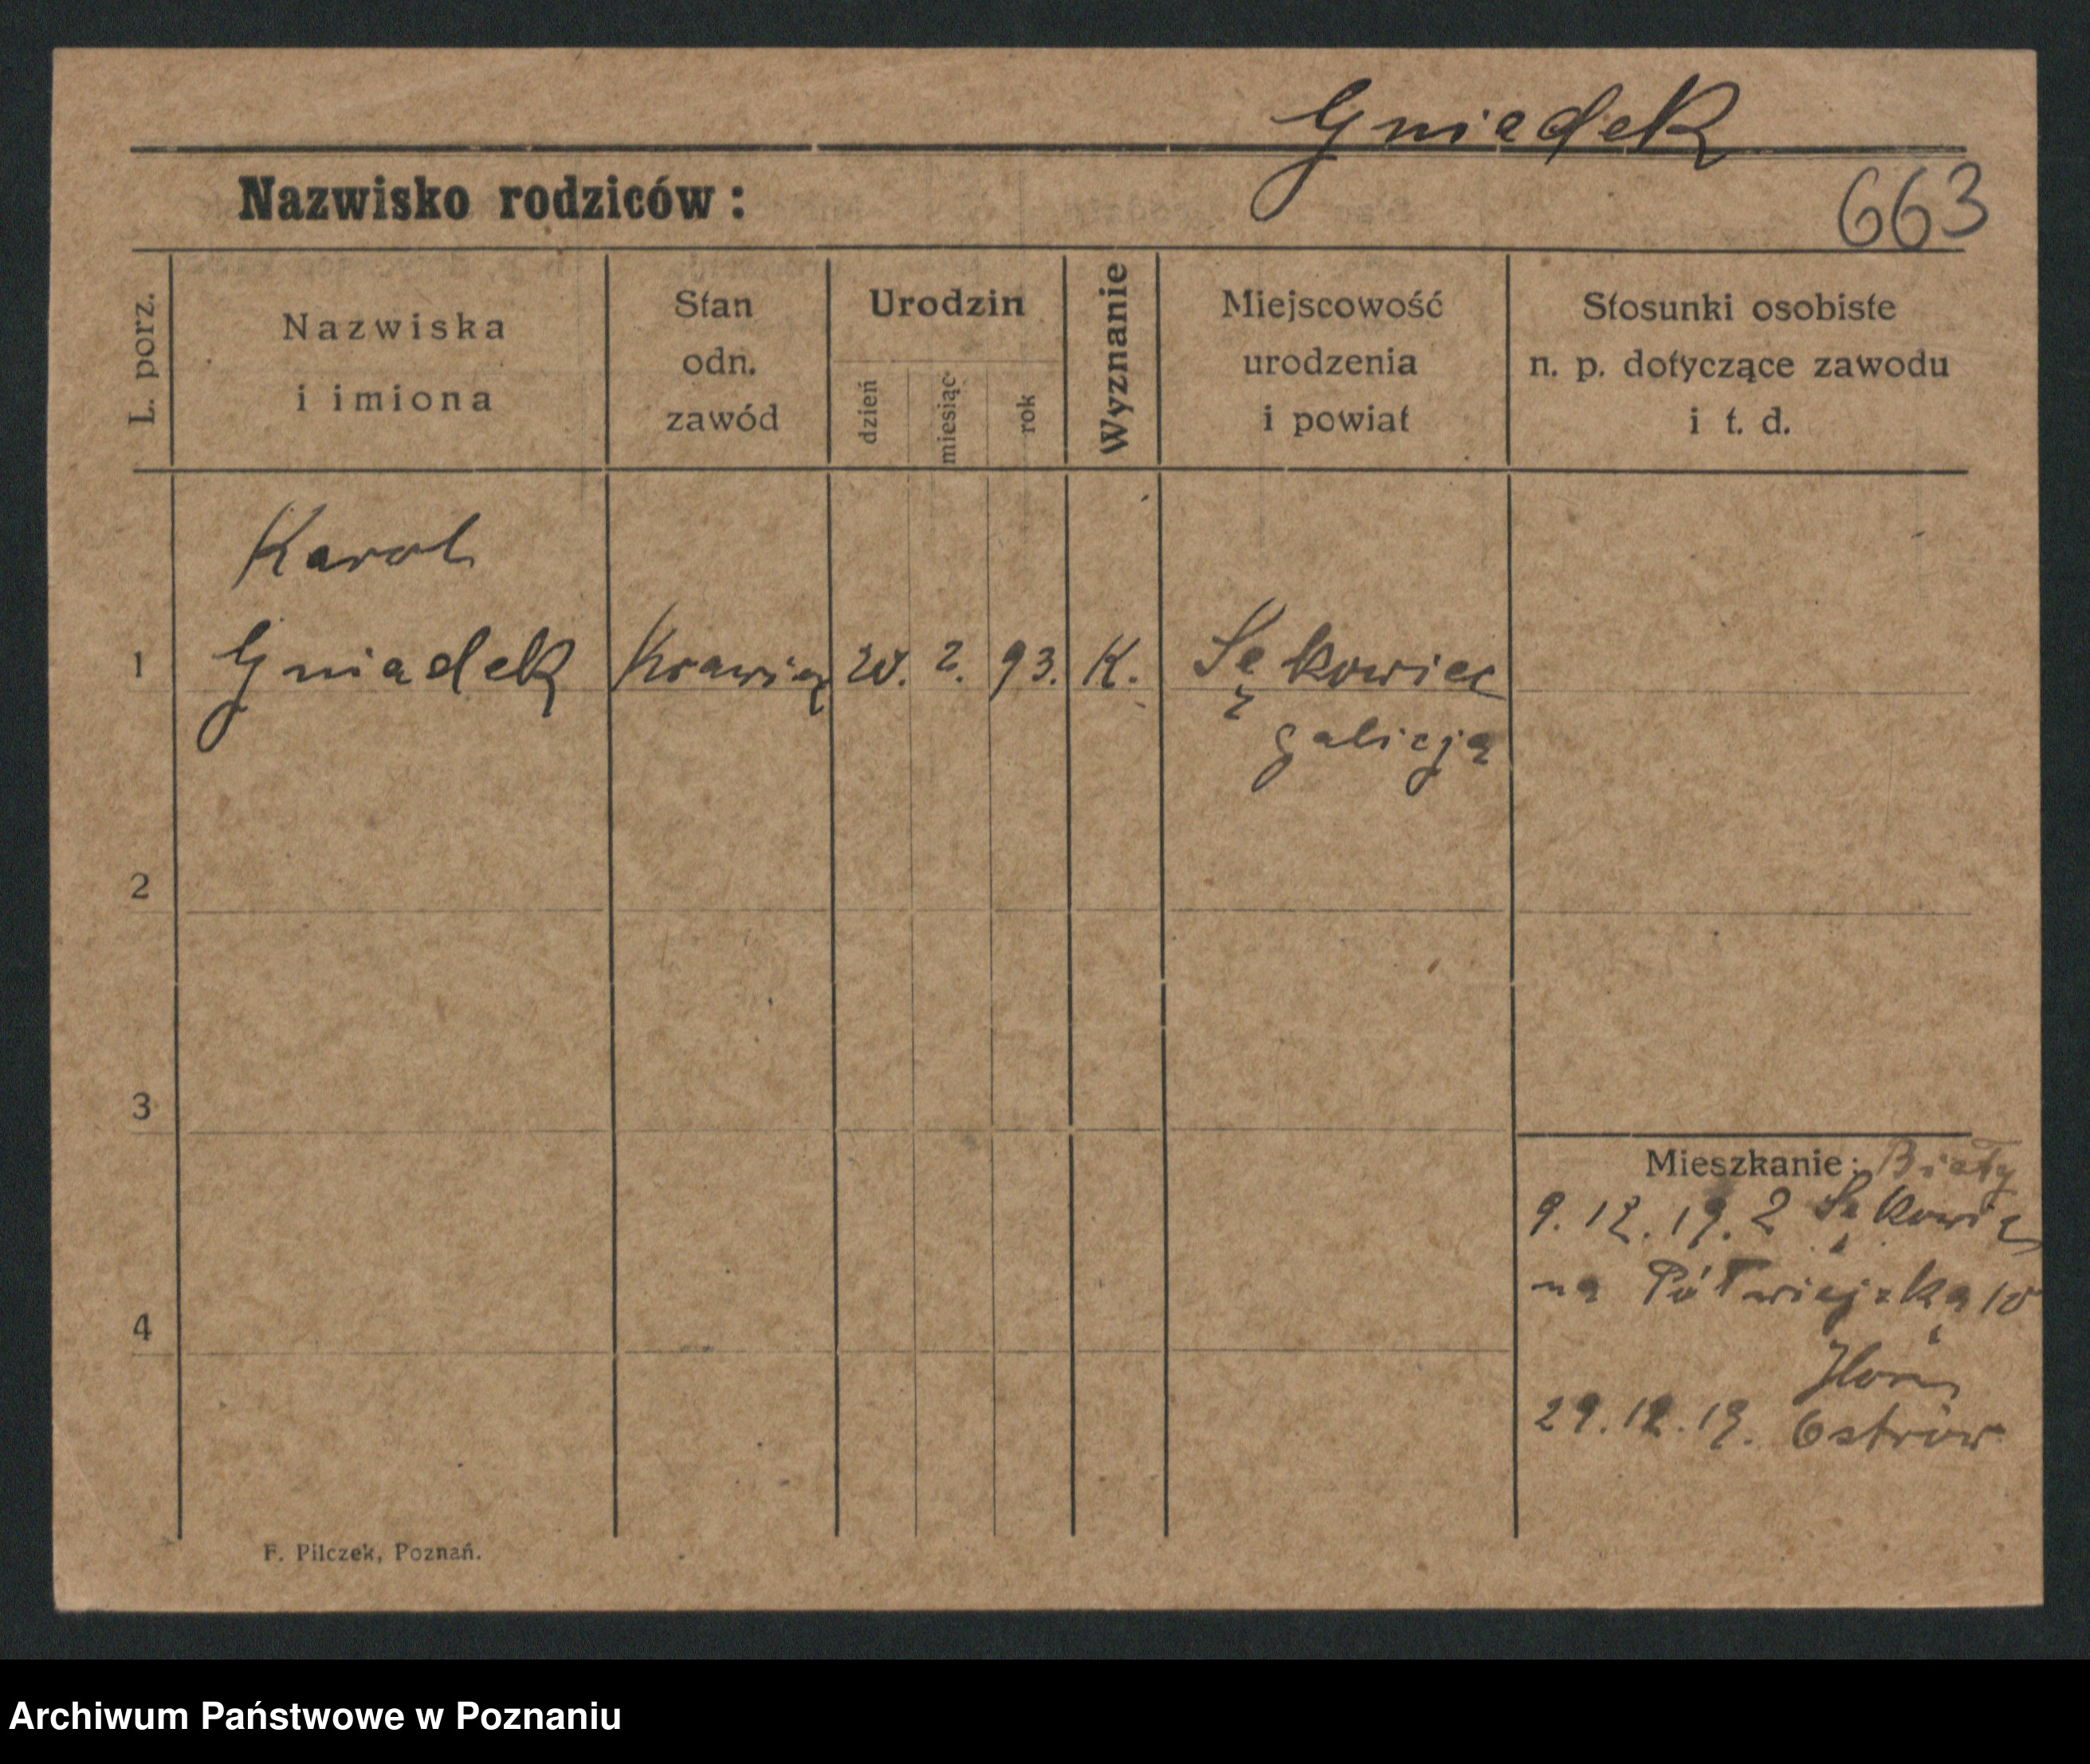 Gniadek
Nazwisko rodziców:
663
L. porz.
Nazwiska
i imiona
Stan
odn.
zawód
Urodzin
dzień
miesiąc
rok
Wyznanie
Miejscowość
urodzenia
i powiat
Stosunki osobiste
n. p. dotyczące zawodu
i t. d.
Karol
1 Gniadek Krawiec 20. 2. 93. K. Sękowiec
galicja
2
3
4
Mieszkanie: Biały
9.12.19. z Sękowiec
na Półwiejską 10
29.12.19. Ostrów
F. Pilczek, Poznań.
Archiwum Państwowe w Poznaniu